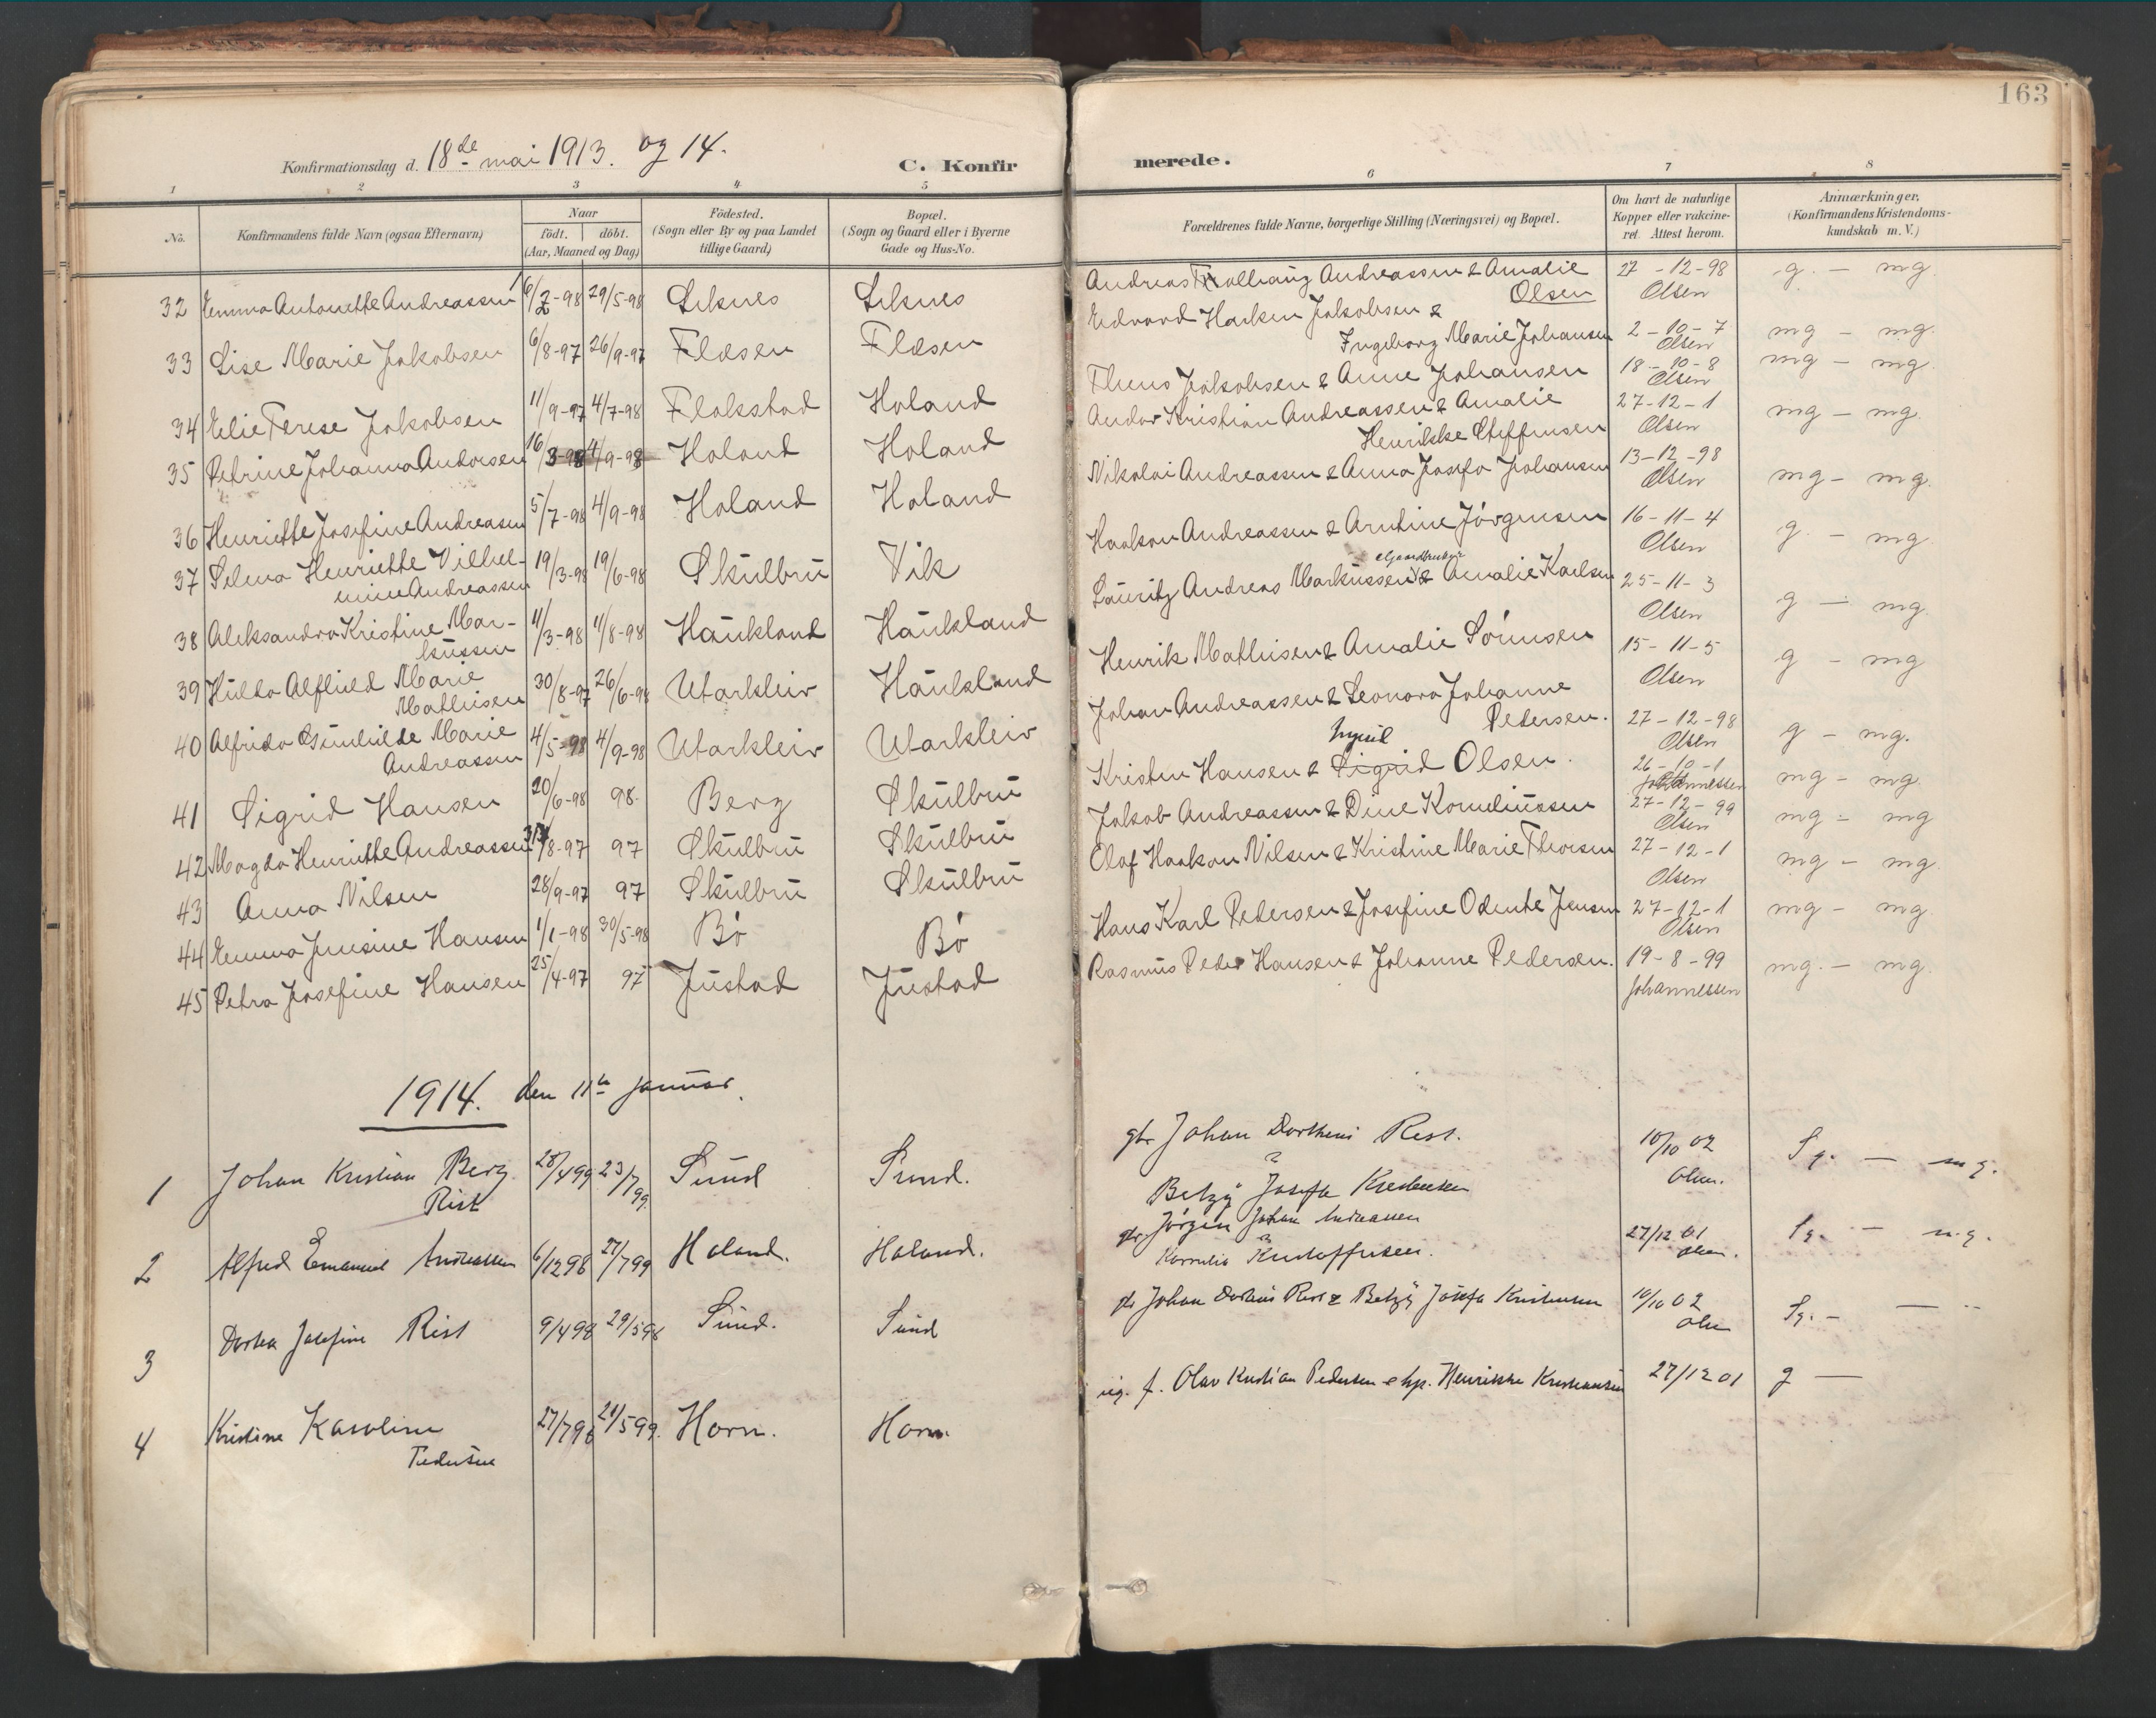 163
Konfirmationsdag d. 18de mai 1913. og 14.
C. Konfirmerede.
1 2 3 4 5 6 7 8
No.
Konfirmandens fulde Navn (ogsaa Efternavn)
Naar
födt. döbt.
(Aar, Maaned og Dag)
Födested.
(Sogn eller By og paa Landet
tillige Gaard)
Bopæl.
(Sogn og Gaard eller i Byerne
Gade og Hus-No.
Forældrenes fulde Navne, borgerlige Stilling (Næringsvei) og Bopæl.
Om havt de naturlige
Kopper eller vakcine-
ret. Attest herom.
Anmærkninger.
(Konfirmandens Kristendoms-
kundskab m. V.)
32 Emma Antonette Andreassen 16/2-98 29/5-98 Leknes Leknes Andreas Andreassen & Amalie Olsen 27-12-98 Olsen g. - mg.
33 Lise Marie Jakobsen 6/8-97 26/9-97 Flæsen Flæsen Edvard Haakon Jakobsen & Ingeborg Marie Johansen 2-10-7 Olsen mg - mg.
34 Elie Terese Jakobsen 11/9-97 4/7-98 Flakstad Holand Jakobsen & Anne Johansen 18-10-8 Olsen mg - mg.
35 Petrine Johanna Andorsen 16/3-98 4/9-98 Holand Holand Andor Kristian Andreassen & Amalie Henrikke Steffensen 27-12-1 Olsen mg - mg.
36 Henriette Josefine Andreasen 5/7-98 4/9-98 Holand Holand Nikolai Andreassen & Anna Josefa Johansen 13-12-98 Olsen mg - mg.
37 Selma Henriette Vilhel-
mine Andreassen 19/3-98 19/6-98 Skulbru Vik Haakon Andreassen & Arntine Jörgensen 16-11-4 Olsen g. - mg
38 Aleksandra Kristine Mar-
kussen 11/3-98 11/8-98 Haukland Haukland Lauritz Andreas Markussen gaardbruker & Amalie Karlsen 25-11-3 Olsen g - mg.
39 Hulda Alfhild Marie
Mathisen 30/8-97 26/6-98 Utakleiv Haukland Henrik Mathisen & Amalie Sörensen 15-11-5 Olsen g - mg
40 Alfrida Gunhilde Marie
Andreassen 4/5-98 4/9-98 Utakleiv Utakleiv Johan Andreassen & Leonora Johanne Pedersen. 27-12-98 Olsen g - mg.
41 Sigrid Hansen 20/6-98 98. Berg Skulbru Kristen Hansen & Sigrid Olsen. 26-10-1 Johannessen mg - mg.
42 Magda Henriette Andreassen 31/8-97 97 Skulbru Skulbru Jakob Andreassen & Dine Korneliussen 27-12-99 Olsen mg - mg
43 Anna Nilsen 28/9-97 97 Skulbru Skulbru Olaf Haakon Nilsen & Kristine Marie Thorsen 27-12-1 Olsen mg - mg.
44 Emma Jensine Hansen 1/1-98 30/5-98 Bö Bö Hans Karl Pedersen & Josefine Odente Jensen 27-12-1 Olsen mg - mg
45 Petra Josefine Hansen 25/4-97 97 Justad Justad Rasmus Peder Hansen & Johanne Pedersen. 19-8-99 Johannessen mg. - mg.
1914. den 11te januar.
1 Johan Kristian Berg
Rist 28/4 99 23/7 99. Sund Sund. gbr Johan Dortheus Rist. & Betzy Josefa Kristensen 10/10 02 Olsen. Sg. - mg.
2 Alfred Emanuel Andreassen 6/12 98 27/7 99 Holand. Holand. Jörgen Johan Andreassen & Kornelia Kristoffersen. 27/12 01 Olsen. Sg. - mg.
3 Dortea Josefine Rist 9/4 98 29/5 98 Sund. Sund Johan Dortheus Rist & Betzy Josefa Kristensen 10/10 02 Olsen Sg. - -
4 Kristine Karoline
Pedersen 27/7 98 21/5 99. Horn. Horn. f. Olav Kristian Pedersen Henrikke Kristiansen 27/12 01 g -